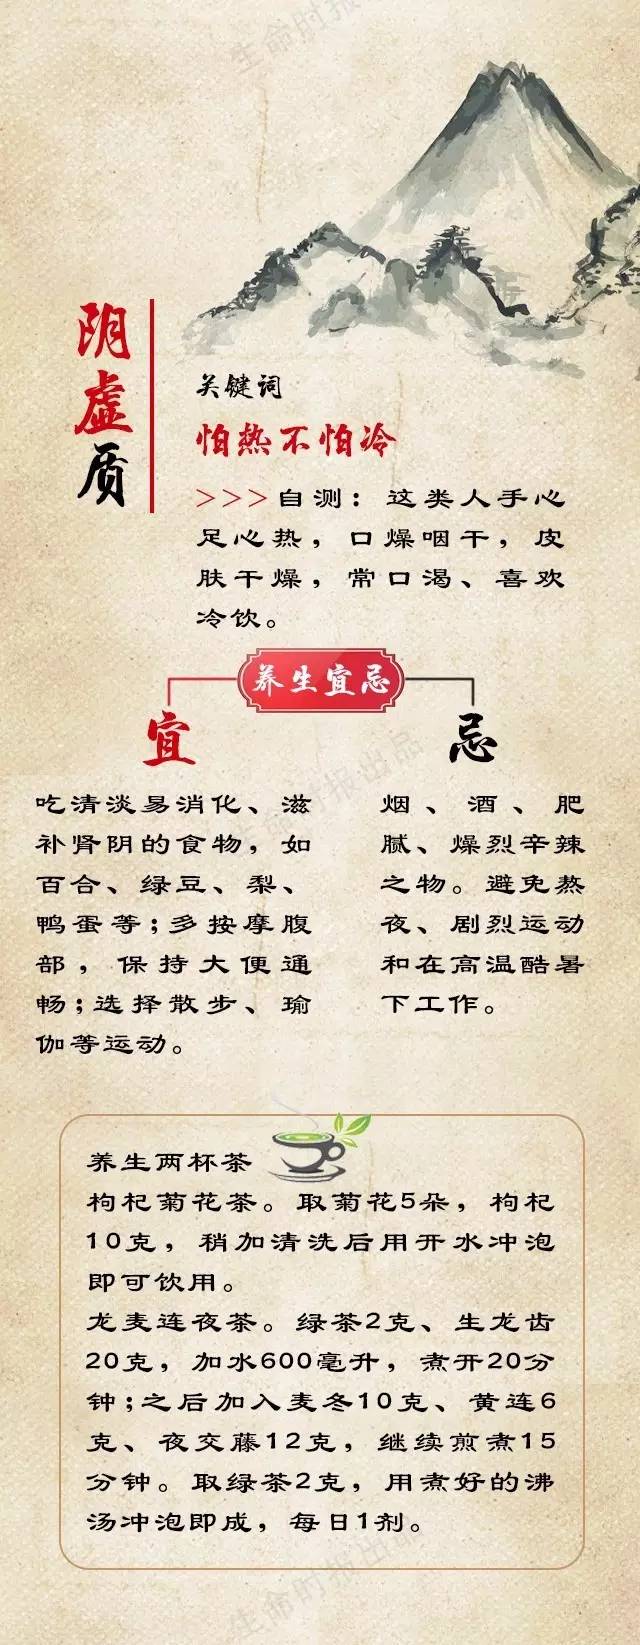 生命时报
阴虚质
关键词
怕热不怕冷
>>>自测：这类人手心
足心热，口燥咽干，皮
肤干燥，常口渴、喜欢
冷饮。
养生宜忌
宜
吃清淡易消化、滋
补肾阴的食物，如
百合、绿豆、梨、
鸭蛋等；多按摩腹
部，保持大便通
畅；选择散步、瑜
伽等运动。
忌
烟、酒、肥
腻、燥烈辛辣
之物。避免熬
夜、剧烈运动
和在高温酷暑
下工作。
生命时报出品
养生两杯茶
枸杞菊花茶。取菊花5朵，枸杞
10克，稍加清洗后用开水冲泡
即可饮用。
龙麦连夜茶。绿茶2克、生龙齿
20克，加水600毫升，煮开20分
钟；之后加入麦冬10克、黄连6
克、夜交藤12克，继续煎煮15
分钟。取绿茶2克，用煮好的沸
汤冲泡即成，每日1剂。
生命时报出品